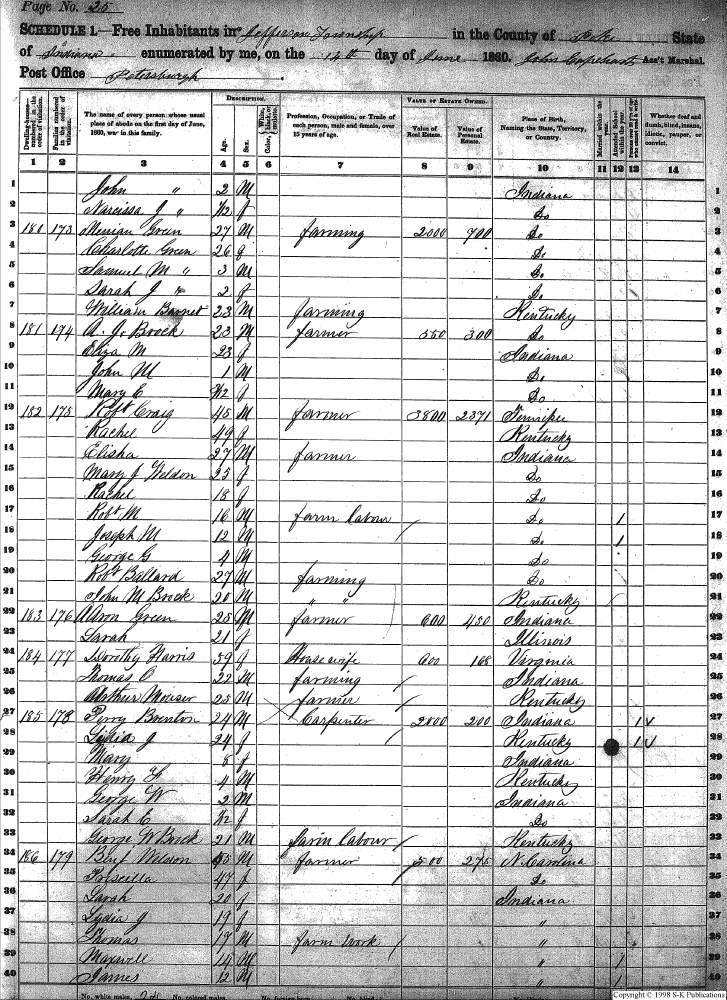 Page No. 25
SCHEDULE 1.—Free Inhabitants in Jefferson Township in the County of Pike State
of Indiana enumerated by me, on the 14th day of June 1860. John Ass't Marshal.
Post Office Petersburgh
DESCRIPTION. VALUE OF ESTATE OWNED.
The name of every person whose usual place of abode on the first day of June, 1860, was in this family. Age. Sex. Profession, Occupation, or Trade of each person, male and female, over 15 years of age. Value of Real Estate. Value of Personal Estate. Place of Birth, Naming the State, Territory, or Country. Married within the year. Attended School within the year. Whether deaf and dumb, blind, insane, idiotic, pauper, or convict.
1 2 3 4 5 6 7 8 9 10 11 12 13 14
1 John " 2 M Indiana 1
2 Narcissa J " /12 f Do 2
3 180 173 Green 27 M farming 2000 700 Do 3
4 Charlotte Green 26 f Do 4
5 Samuel M " 3 M Do 5
6 Sarah J " 2 f Do 6
7 William Barnet 23 M farming Kentucky 7
8 181 174 A. J. Brock 23 M farmer 550 300 Do 8
9 Eliza M 23 f Indiana 9
10 John M 1 M Do 10
11 Mary E /12 f Do 11
12 182 175 Robt Craig 45 M farmer 3800 2371 Tennessee 12
13 Rachel 49 f Kentucky 13
14 Elisha 27 M farmer Indiana 14
15 Mary J Weldon 25 f Do 15
16 Rachel 18 f Do 16
17 Robt M 16 M farm labour / Do 1 17
18 Joseph M 12 M Do 1 18
19 George G 4 M Do 19
20 Robt Ballard 27 M farming Do 20
21 John M Brock 20 M " " Kentucky 21
22 183 176 Aaron Green 25 M farmer 600 450 Indiana 22
23 Sarah 21 f Illinois 23
24 184 177 Dorothy Harris 59 f House wife 600 168 Virginia 24
25 Thomas O 22 M farming / Indiana 25
26 Arthur Mouser 25 M farmer / Kentucky 26
27 185 178 Perry Brenton 24 M Carpenter 2000 200 Indiana 1 27
28 Lydia J 24 f Kentucky 1 28
29 Mary 8 f Indiana 29
30 Henry 4 M Kentucky 30
31 George W 2 M Indiana 31
32 Sarah C /12 f Do 32
33 George W Brock 21 M farm labour / Kentucky 33
34 186 179 Benj Weldon 55 M farmer 500 275 N. Carolina 34
35 Priscilla 47 f Do 35
36 Sarah 20 f Indiana 36
37 Lydia J 19 f " 37
38 Thomas 17 M farm work / " 38
39 Maxwell 14 M " 1 39
40 James 12 M " 1 40
No. white males, 24 No. colored males,
Copyright © 1998 S-K Publications